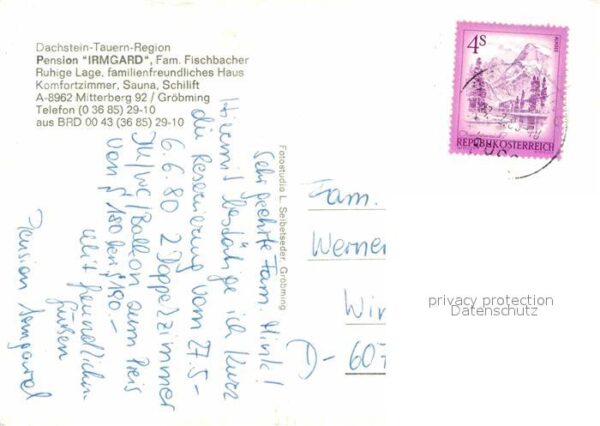 Dachstein-Tauern-Region
Pension "IRMGARD", Fam. Fischbacher
Ruhige Lage, familienfreundliches Haus
Komfortzimmer, Sauna, Schilift
A-8962 Mitterberg 92 / Gröbming
Telefon (0 36 85) 29-10
aus BRD 00 43 (36 85) 29-10
Sehr geehrte Fam. Hink!
Hiermit bestätige ich kurz
die Reservierung vom 27.5-
6.6.80 2 Doppelzimmer
DU/WC/Balkon zum Preis
von S 180 bis S 190.-
Mit freundlichen
Grüßen
Pension Irmgard
Fotostudio L. Seibetseder, Gröbming
4s
REPUBLIK ÖSTERREICH
Fam.
Werner
Wir
D-607
privacy protection
Datenschutz